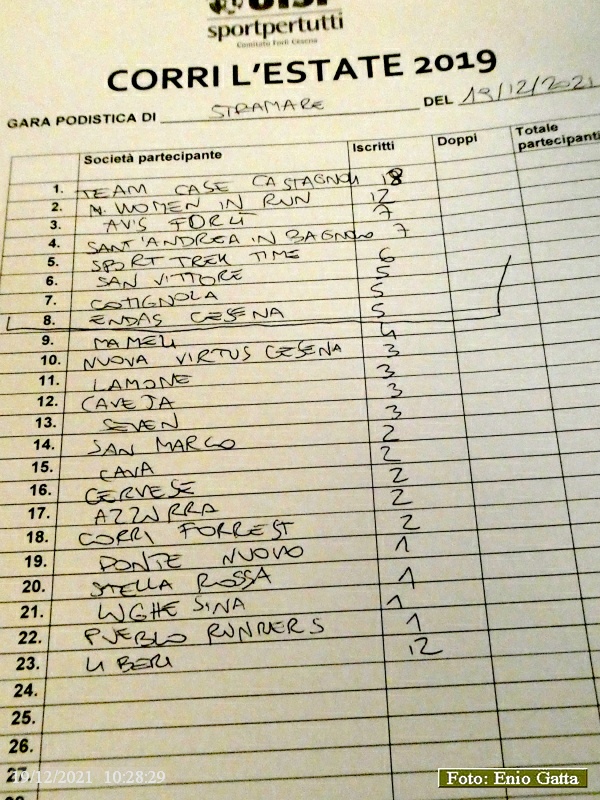 UISP
sportpertutti
Comitato Forlì Cesena
CORRI L'ESTATE 2019
GARA PODISTICA DI STRAMARE DEL 19/12/2021
Società partecipante Iscritti Doppi Totale partecipanti
1. TEAM CASE CASTAGNOLI 18
2. N. WOMEN IN RUN 12
3. AVIS FORLÌ 7
4. SANT'ANDREA IN BAGNOLO 7
5. SPORT TREK TIME 6
6. SAN VITTORE 5
7. COTIGNOLA 5
8. ENDAS CESENA 5
9. MAMELI 4
10. NUOVA VIRTUS CESENA 3
11. LAMONE 3
12. CAVEJA 3
13. SEVEN 3
14. SAN MARCO 2
15. CAVA 2
16. CERVESE 2
17. AZZURRA 2
18. CORRI FORREST 2
19. PONTE NUOVO 1
20. STELLA ROSSA 1
21. LUGHESINA 1
22. PUEBLO RUNNERS 1
23. LIBERI 12
24.
25.
26.
27.
19/12/2021 10:28:29
Foto: Enio Gatta